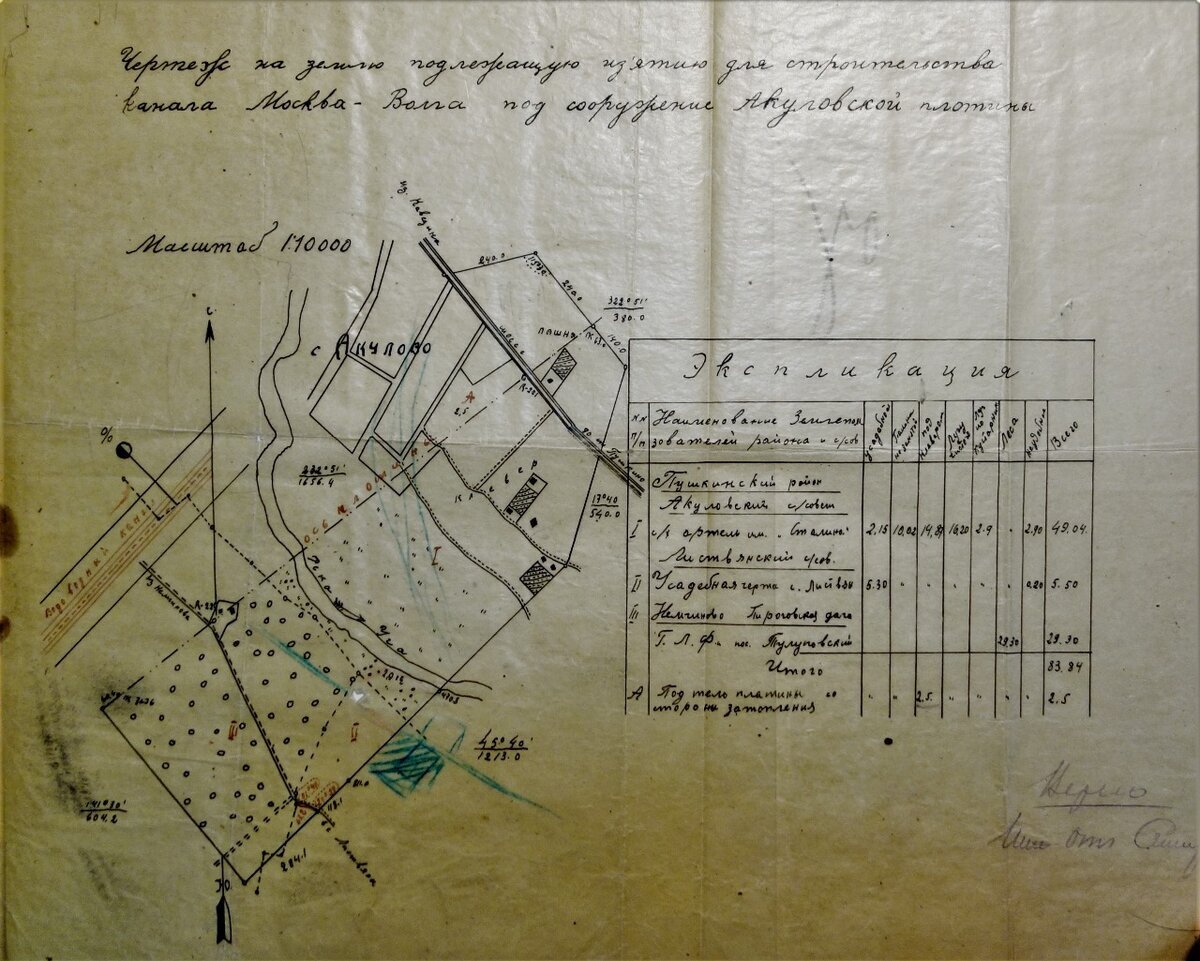 Чертеж на землю подлежащую из'ятию для строительства
канала Москва-Волга под сооружение Акуловской плотины
Масштаб 1:10000
с.
с Акулово
240.0
240.0
322°51'
380.0
140.0
пашня
шоссе
А
2,5
232°51'
1656.4
ось плотины
17°40
540.0
Пушкино
I
Водоводный канал
Река Уча
%
III
II
45°40'
1213.0
141°30'
604.2
204.1
Ю.
Экспликация
№№ п/п
Наименование Землепользователей района и с/сов
усадебной
Леса
Всего
Пушкинский район
Акуловский с/совет
I с/х артель им. "Сталина" 2.15 10,02 14,87 16,20 2.9 " 2.90 49.04.
Листвянский с/сов.
II Усадебная черта с. Листвян 5.30 " " " " " 0.20 5.50
III Немчиново Пироговская дача
Г.Л.Ф. 29.30 29.30
Итого 83.84
А Под тело платины со стороны затопления " " 2.5. " " " " 2.5
Верно